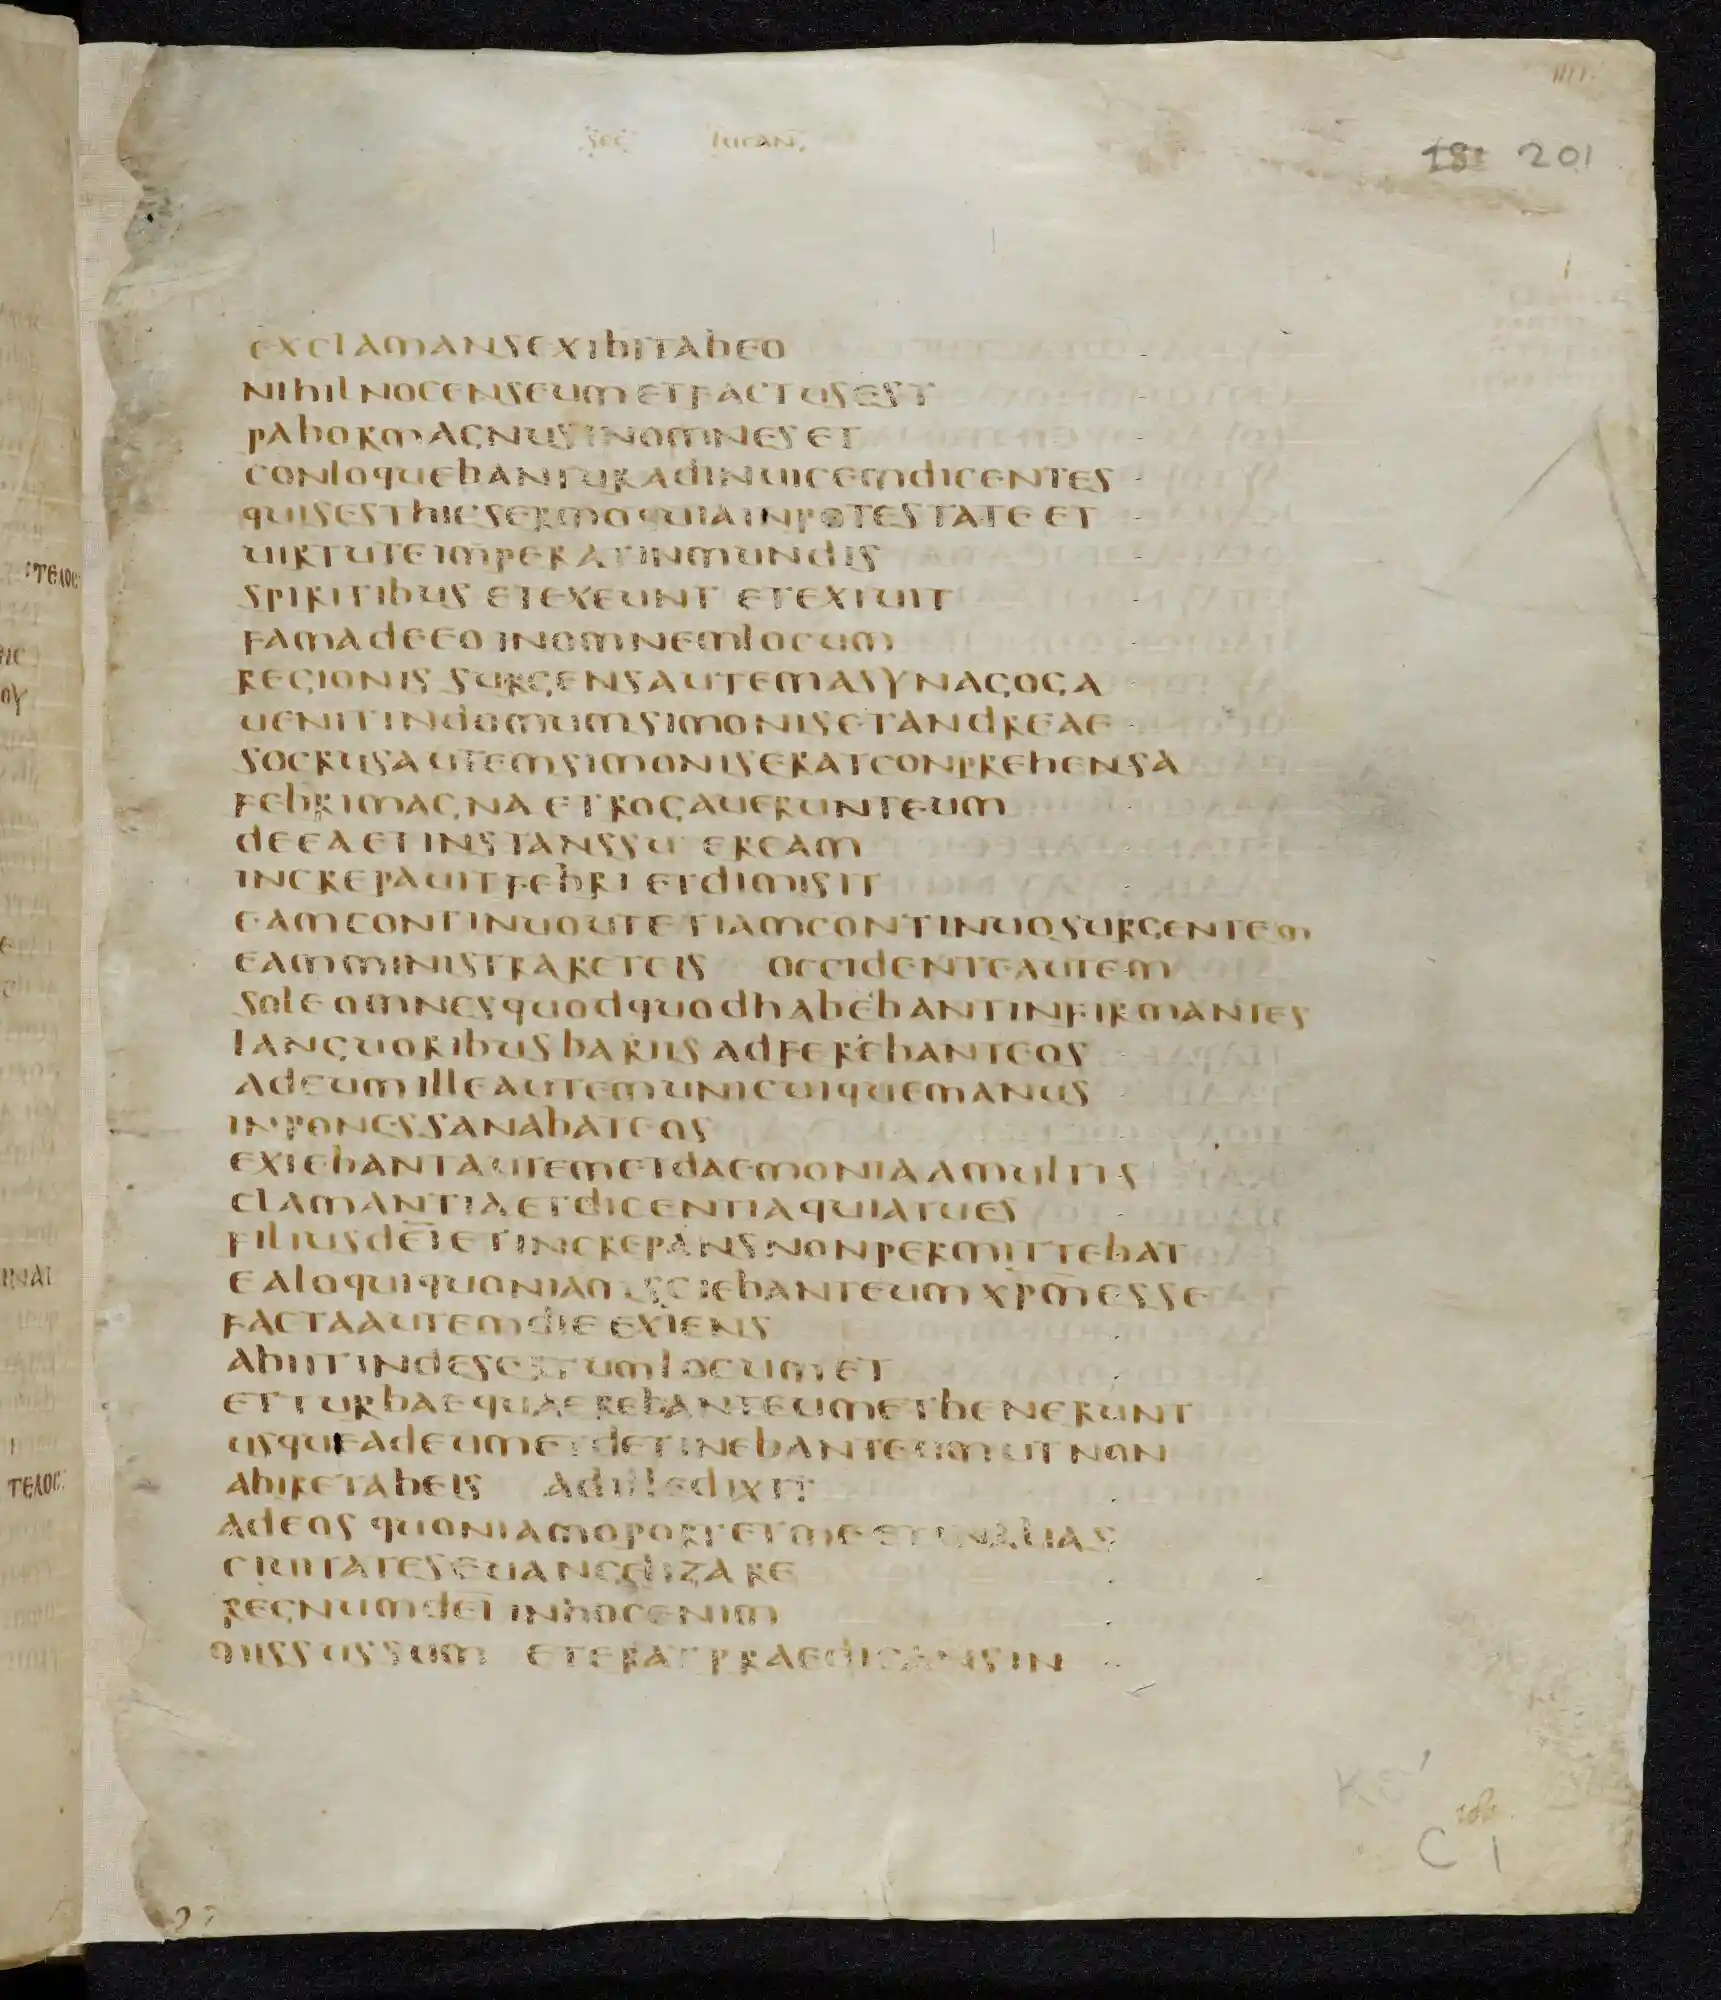 sec lucan
18 201
exclamansexibitabeo
nihilnocenseumetfactusest
pabormagnusinomneset
conloquebanturadinuicemdicentes
quisesthicsermoquiainpotestateet
uirtuteimperatinmundis
spiritibus etexeunt etexiuit
famadeeo inomnemlocum
regionis surgensautemasynagoga
uenitindomumsimonisetandreae
socrusautemsimoniseratconprehensa
febrimagna etrogauerunteum
deeaetinstanssu eream
increpauitfebri etdimisit
eamcontinuoutetiamcontinuosurgentem
eamministrareteis occidenteautem
soleomnesquodquodhabebantinfirmantes
languoribusbariis adferebanteos
adeum illeautemunicuiquemanus
inponessanabateos
exiebantautemetdaemoniaamultis
clamantiaetdicentiaquiatues
filiusdeī etincrepansnonpermittebat
ealoquiquoniamsciebanteumxpm̄esse
factaautemdie exiens
abiitindesertumlocumet
etturbaequaerebanteumetbenerunt
usqueadeumetdetinebanteumutnon
abiretabeis adilledixit
adeos quoniamoportetmeetinalias
ciuitateseuangelizare
regnumdeī inhocenim
missussum eteratpraedicansin
C 1
τελος
τελος